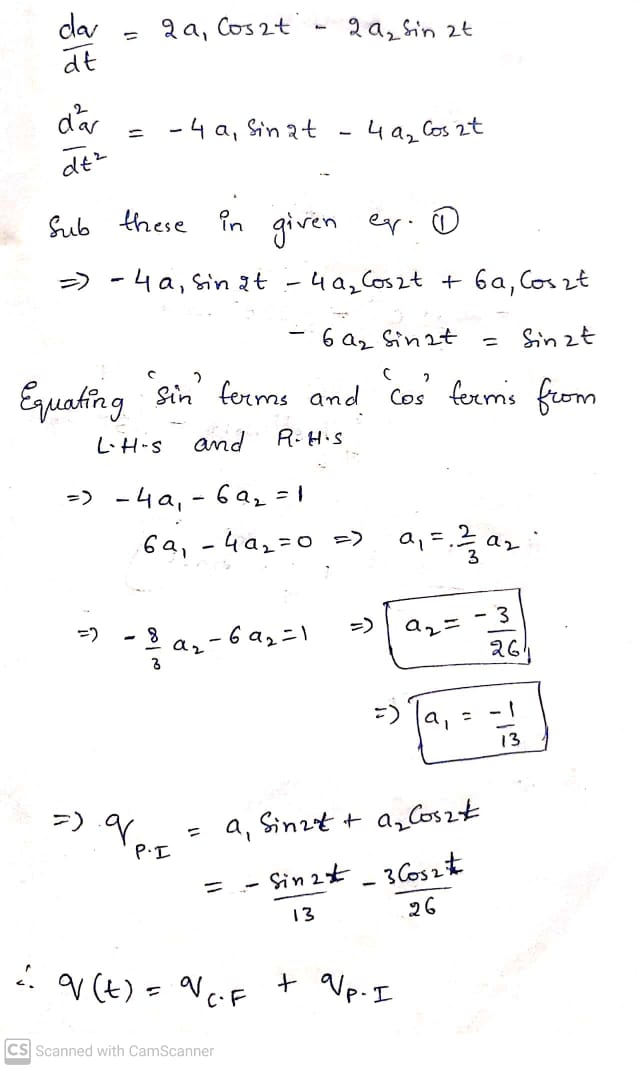 dq/dt = 2a₁ Cos2t - 2a₂ Sin 2t
d²q/dt² = -4a₁ Sin 2t - 4a₂ Cos 2t
Sub these in given eq. ①
=> -4a₁ Sin 2t - 4a₂ Cos2t + 6a₁ Cos 2t
- 6a₂ Sin 2t = Sin 2t
Equating 'Sin' terms and 'Cos' terms from
L.H.S and R.H.S
=> -4a₁ - 6a₂ = 1
6a₁ - 4a₂ = 0 => a₁ = 2/3 a₂
=> -8/3 a₂ - 6a₂ = 1 => a₂ = -3/26
=> a₁ = -1/13
=> q_P.I = a₁ Sin2t + a₂ Cos2t
= - Sin 2t/13 - 3 Cos 2t/26
∴ q(t) = q_C.F + q_P.I
CS Scanned with CamScanner